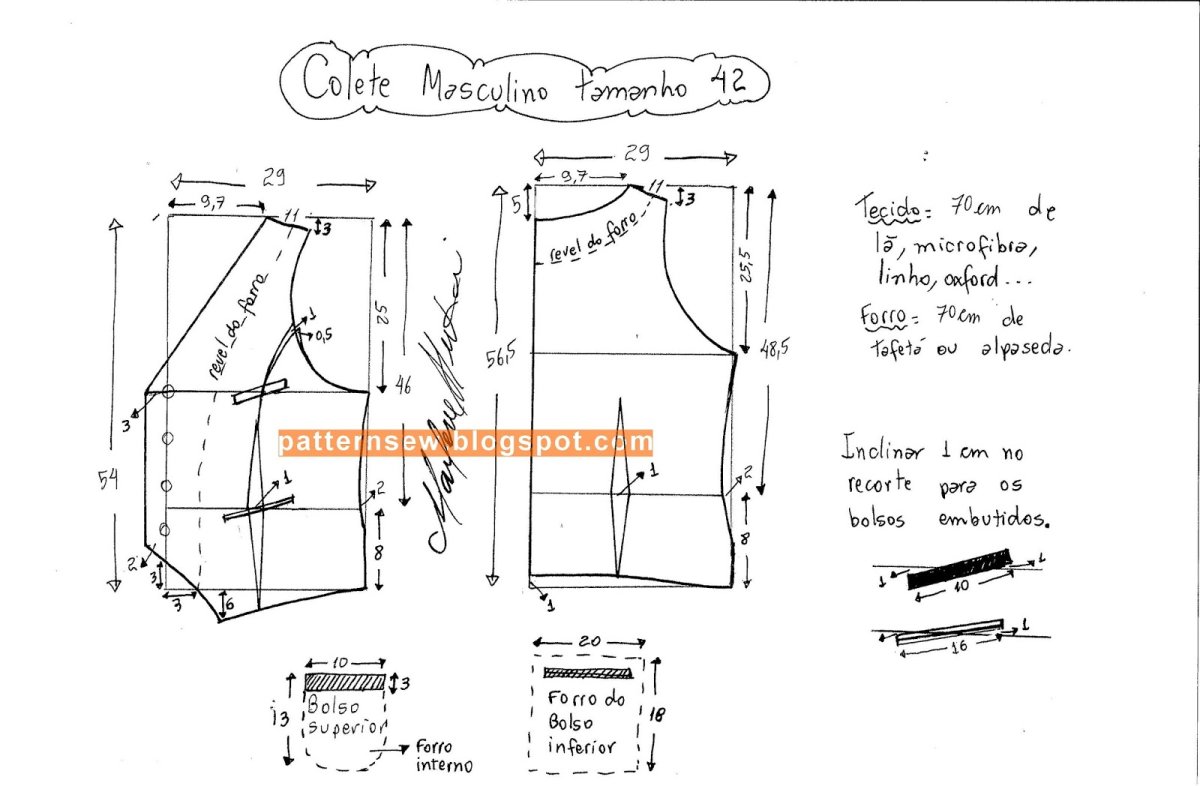 Colete Masculino tamanho 42
29
9,7
11
3
25
revel do forro
1
0,5
46
3
54
2
2
8
3
3
6
29
9,7
11
5
3
revel do forro
25,5
56,5
48,5
1
2
8
1
patternsew.blogspot.com
Tecido = 70 cm de
lã, microfibra,
linho, oxford...
Forro = 70 cm de
tafetá ou alpaseda.
Inclinar 1 cm no
recorte para os
bolsos embutidos.
1
1
10
1
16
10
3
13
Bolso
superior
Forro
interno
20
Forro do
Bolso
inferior
18